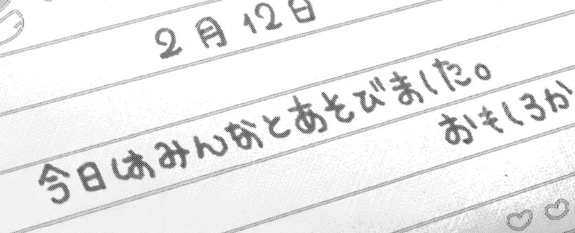 2月12日
今日はみんなとあそびました。
おもしろか